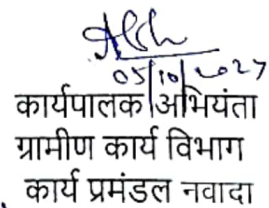 05/10/2027
कार्यपालक अभियंता
ग्रामीण कार्य विभाग
कार्य प्रमंडल नवादा